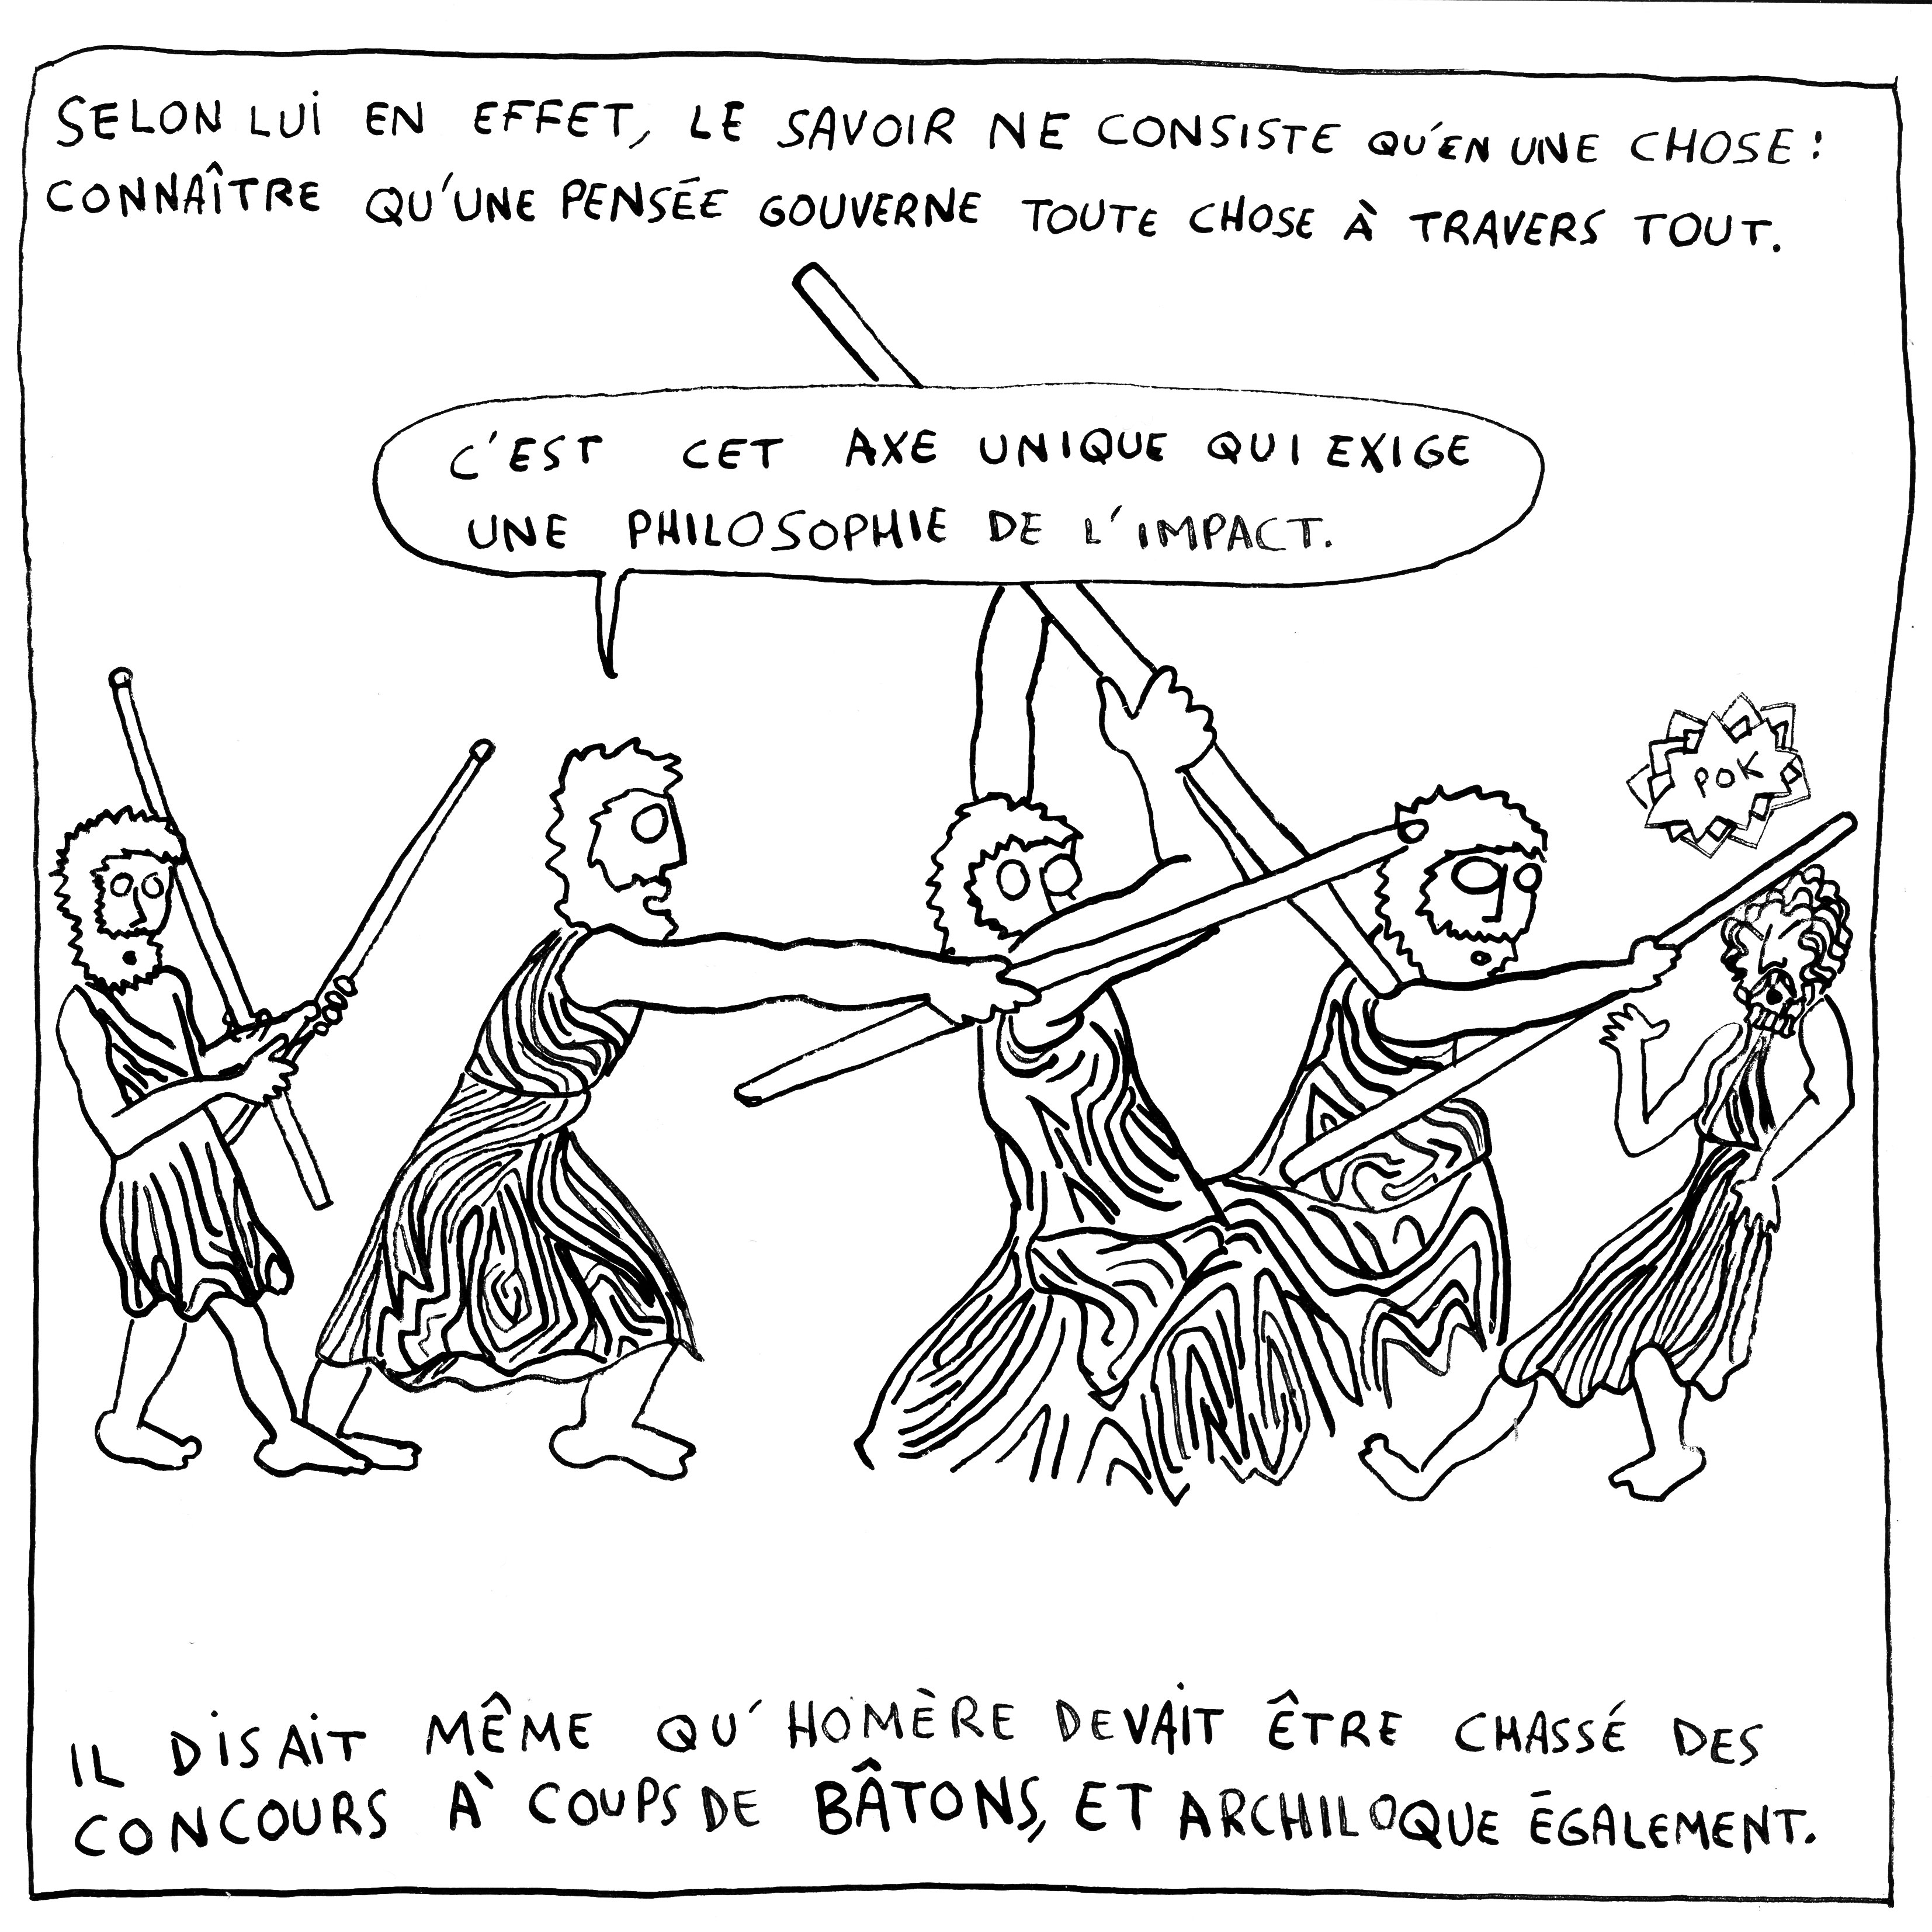 SELON LUI EN EFFET, LE SAVOIR NE CONSISTE QU'EN UNE CHOSE :
CONNAÎTRE QU'UNE PENSÉE GOUVERNE TOUTE CHOSE À TRAVERS TOUT.
C'EST CET AXE UNIQUE QUI EXIGE
UNE PHILOSOPHIE DE L'IMPACT.
POK
IL DISAIT MÊME QU'HOMÈRE DEVAIT ÊTRE CHASSÉ DES
CONCOURS À COUPS DE BÂTONS, ET ARCHILOQUE ÉGALEMENT.